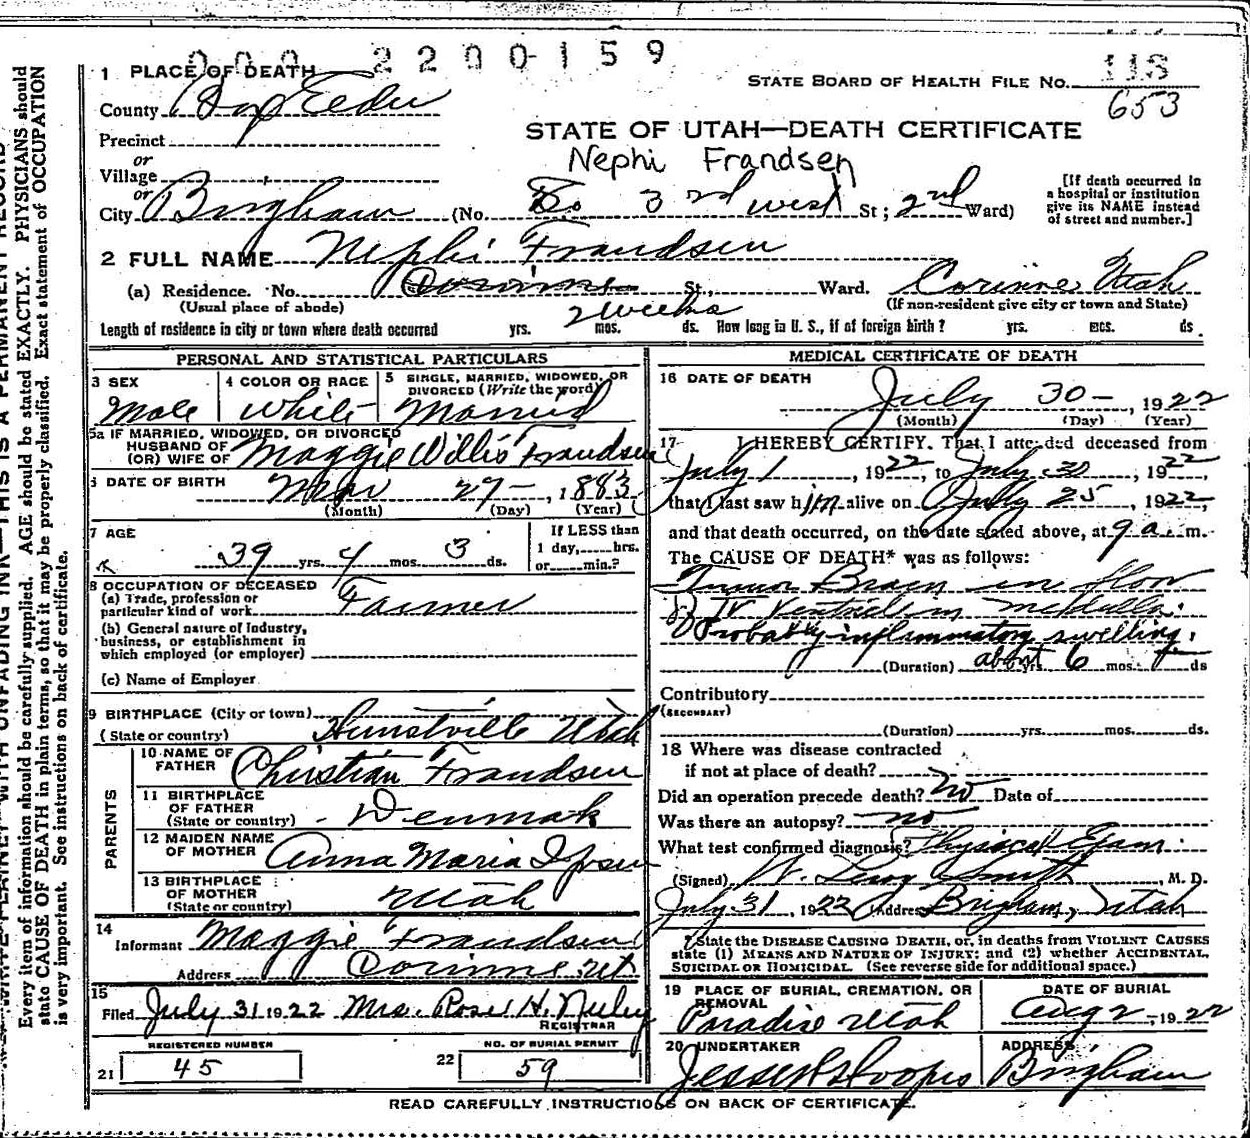 000 2200159
1 PLACE OF DEATH
STATE BOARD OF HEALTH FILE NO. 118
653
County Box Elder
STATE OF UTAH—DEATH CERTIFICATE
Precinct
or
Nephi Frandsen
Village
or
City Brigham (No. So 3rd west St; 2nd Ward)
[If death occurred in a hospital or institution give its NAME instead of street and number.]
2 FULL NAME Nephi Frandsen
(a) Residence. No. Corinne St., Ward. Corinne Utah
(Usual place of abode) (If non-resident give city or town and State)
Length of residence in city or town where death occurred yrs. 2 weeks mos. ds. How long in U. S., if of foreign birth? yrs. mos. ds.
PERSONAL AND STATISTICAL PARTICULARS
3 SEX Male
4 COLOR OR RACE White
5 SINGLE, MARRIED, WIDOWED, OR DIVORCED (Write the word) Married
5a IF MARRIED, WIDOWED, OR DIVORCED
HUSBAND OF
(OR) WIFE OF Maggie Willis Frandsen
6 DATE OF BIRTH Mar 27-, 1883
(Month) (Day) (Year)
7 AGE
39 yrs. 4 mos. 3 ds.
If LESS than
1 day, hrs.
or min.?
8 OCCUPATION OF DECEASED
(a) Trade, profession or
particular kind of work Farmer
(b) General nature of Industry,
business, or establishment in
which employed (or employer)
(c) Name of Employer
9 BIRTHPLACE (City or town)
(State or country) Huntsville Utah
PARENTS
10 NAME OF
FATHER Christian Frandsen
11 BIRTHPLACE
OF FATHER
(State or country) Denmark
12 MAIDEN NAME
OF MOTHER Anna Maria Ipsen
13 BIRTHPLACE
OF MOTHER
(State or country) Utah
14
Informant Maggie Frandsen
Address Corinne Ut.
15
Filed July 31 1922 Mrs. Rose H.
REGISTRAR
REGISTERED NUMBER
21 45
NO. OF BURIAL PERMIT
22 59
MEDICAL CERTIFICATE OF DEATH
16 DATE OF DEATH
July 30-, 1922
(Month) (Day) (Year)
17 I HEREBY CERTIFY. That I attended deceased from
July 1, 1922, to July 30, 1922,
that I last saw him alive on July 25, 1922,
and that death occurred, on the date stated above, at 9 a. m.
The CAUSE OF DEATH* was as follows:
Tumor Brain in floor
of IV Ventricle in medulla.
Probably inflammatory swelling.
(Duration) about yrs. 6 mos. ds
Contributory
(SECONDARY)
(Duration) yrs. mos. ds.
18 Where was disease contracted
if not at place of death?
Did an operation precede death? no Date of
Was there an autopsy? no
What test confirmed diagnosis? Physical Exam.
(Signed) W. Leroy Smith, M. D.
July 31, 1922 (Address) Brigham, Utah
* State the DISEASE CAUSING DEATH, or, in deaths from VIOLENT CAUSES
state (1) MEANS AND NATURE OF INJURY; and (2) whether ACCIDENTAL,
SUICIDAL OR HOMICIDAL. (See reverse side for additional space.)
19 PLACE OF BURIAL, CREMATION, OR
REMOVAL
Paradise Utah
DATE OF BURIAL
Aug 2, 1922
20 UNDERTAKER
ADDRESS
Brigham
READ CAREFULLY INSTRUCTIONS ON BACK OF CERTIFICATE.
Every item of information should be carefully supplied. AGE should be stated EXACTLY. PHYSICIANS should
state CAUSE OF DEATH in plain terms, so that it may be properly classified. Exact statement of OCCUPATION
is very important. See instructions on back of certificate.